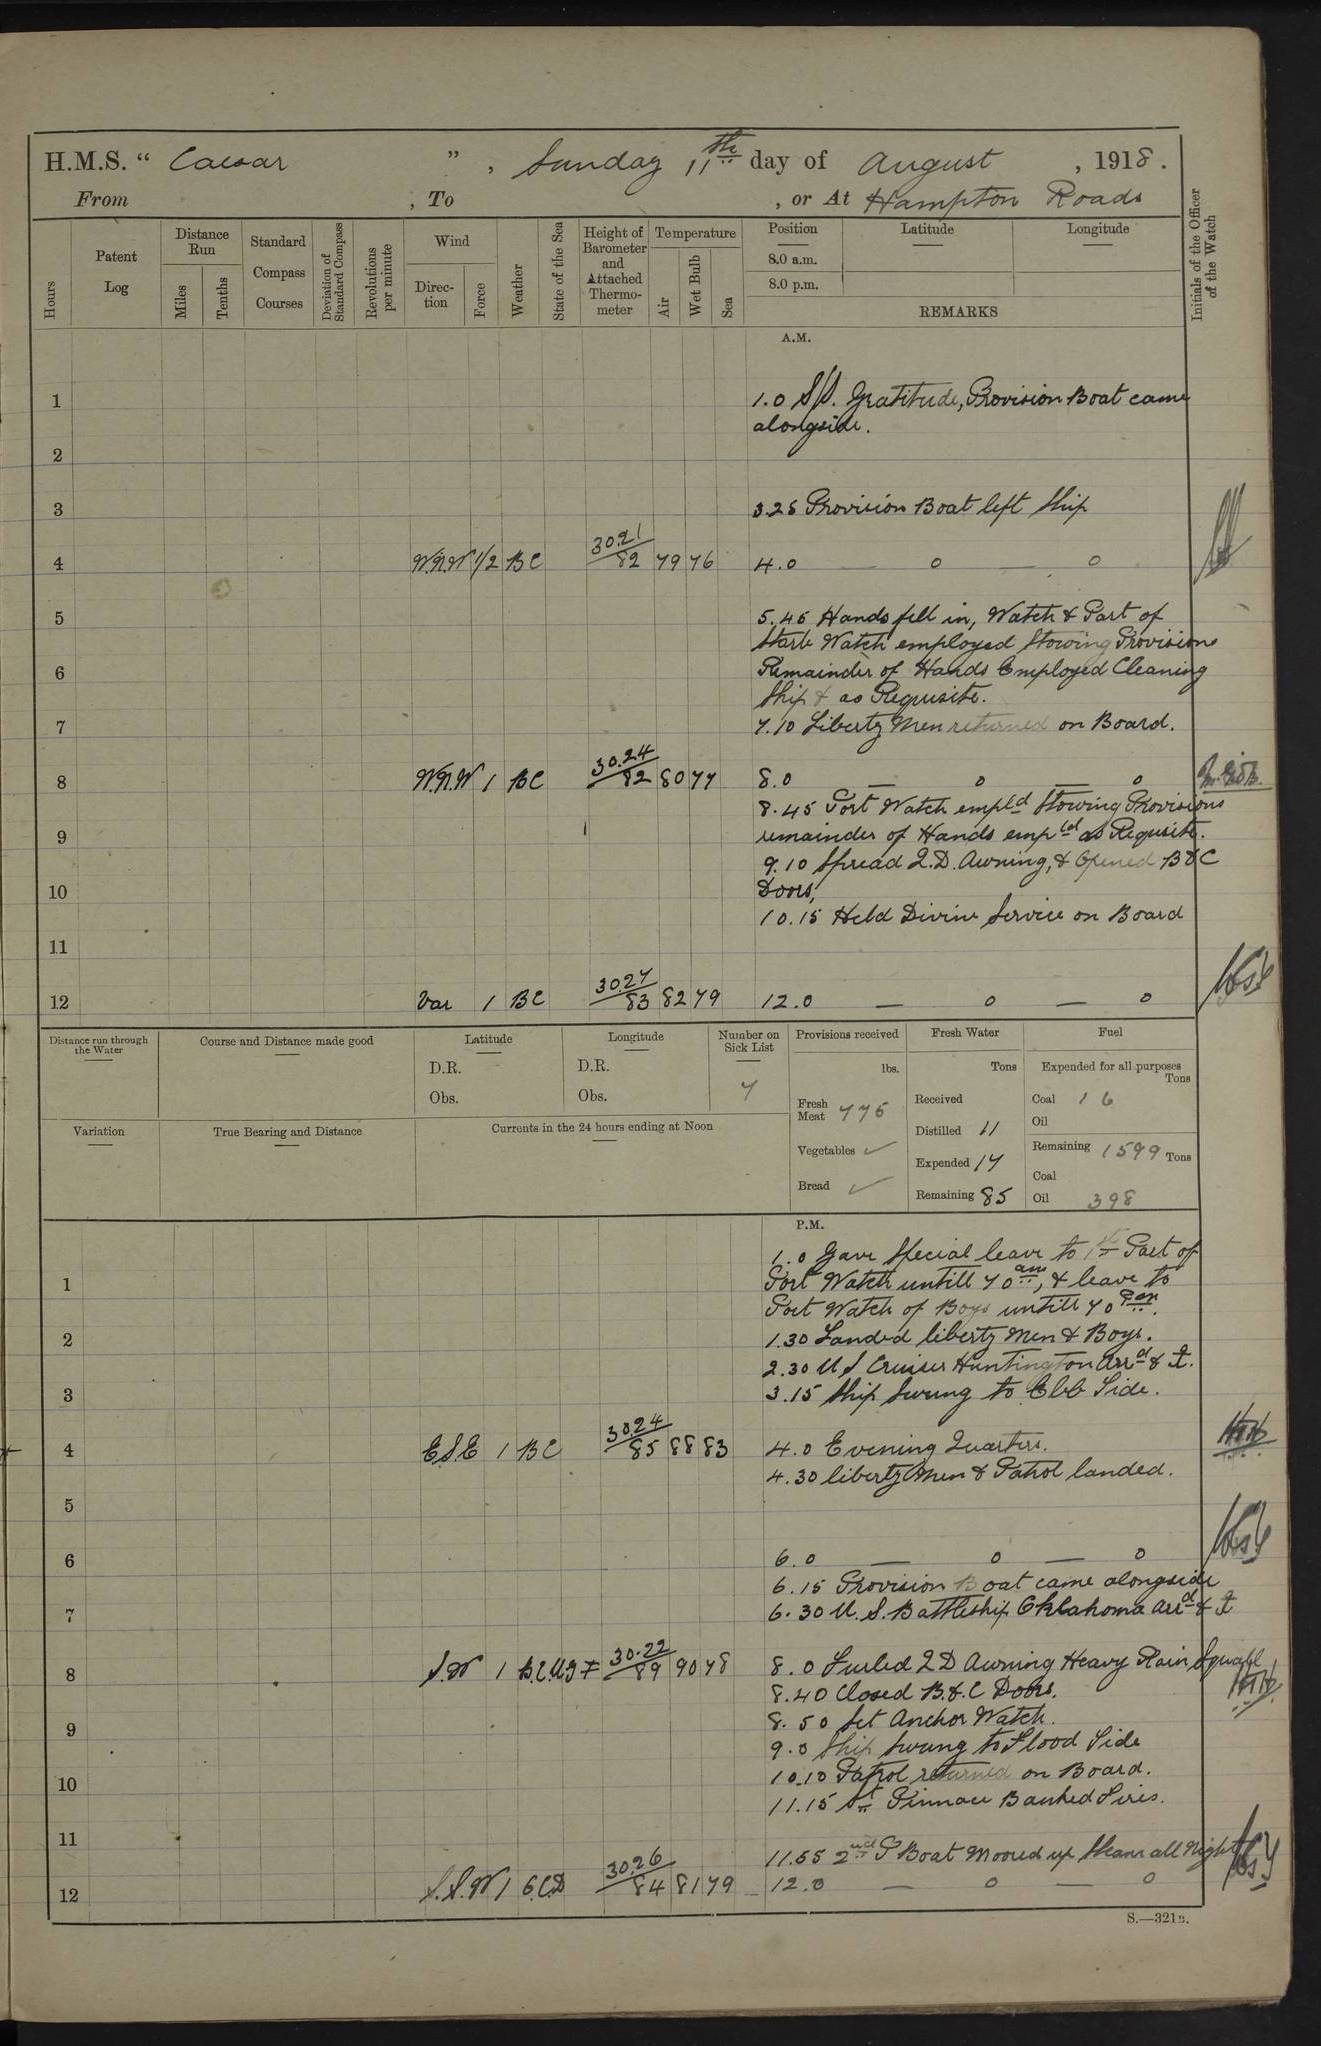 H.M.S. " Caesar ", Sunday 11th day of August, 1918.
From , To , or At Hampton Roads
Hours
Patent Log
Distance Run
Miles
Tenths
Standard Compass Courses
Deviation of Standard Compass
Revolutions per minute
Wind
Direction
Force
Weather
State of the Sea
Height of Barometer and Attached Thermometer
Temperature
Air
Wet Bulb
Sea
Position
8.0 a.m.
8.0 p.m.
Latitude
Longitude
REMARKS
Initials of the Officer of the Watch
A.M.
1 1.0 S/S. Gratitude, Provision Boat came
alongside.
2
3 3.25 Provision Boat left Ship
4 W.N.W 1/2 BC 30.21/82 79 76 4.0 — o — o
5 5.45 Hands fell in, Watch & Part of
Starb Watch employed Stowing Provisions
6 Remainder of Hands Employed Cleaning
Ship & as Requisite.
7 7.10 Liberty Men returned on Board.
8 W.N.W 1 BC 30.24/82 80 77 8.0 — o — o
8.45 Port Watch empld Stowing Provisions
9 remainder of Hands empld as Requisite.
9.10 Spread Q.D. Awning, & Opened B & C
10 Doors,
10.15 Held Divine Service on Board
11
12 Var 1 BC 30.27/83 82 79 12.0 — o — o
Distance run through the Water
Course and Distance made good
Latitude
D.R.
Obs.
Longitude
D.R.
Obs.
Number on Sick List
7
Provisions received
lbs.
Fresh Meat 775
Vegetables ✓
Bread ✓
Fresh Water
Tons
Received
Distilled 11
Expended 17
Remaining 85
Fuel
Expended for all purposes
Tons
Coal 16
Oil
Remaining 1599 Tons
Coal
Oil 398
Variation
True Bearing and Distance
Currents in the 24 hours ending at Noon
P.M.
1.0 Gave Special leave to 1st Part of
1 Port Watch untill 7 0 am, & leave to
Port Watch of Boys untill 7 0 Pm.
2 1.30 Landed liberty Men & Boys.
2.30 U S Cruiser Huntington Arrd &
3 3.15 Ship Swung to Ebb Side.
4 E.S.E 1 BC 30.24/85 88 83 4.0 Evening Quarters.
4.30 liberty Men & Patrol landed.
5
6 6.0 — o — o
6.15 Provision Boat came alongside
7 6.30 U.S. Battleship Oklahoma arrd &
8 S.W 1 30.22/89 90 78 8.0 Furled QD Awning Heavy Rain Squall
8.40 Closed B.&.C Doors.
9 8.50 Set Anchor Watch.
9.0 Ship Swung to Flood Side
10 10.10 Patrol returned on Board.
11.15 Pinnace Banked Fires.
11 11.55 2nd P Boat Moored up Steam all Night
12 S.S.W 1 30.26/84 81 79 12.0 — o — o
S.—321B.